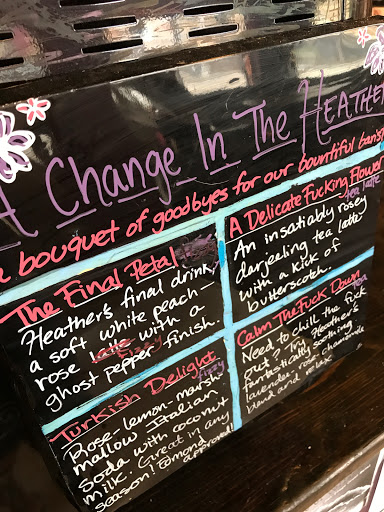 A Change In The Heather
a bouquet of goodbyes for our bountiful barista
The Final Petal
Heather's final drink,
a soft white peach-
rose latte with a
fizzy
ghost pepper finish.
A Delicate Fucking Flower
tea latte
An insatiably rosey
darjeeling tea latte
with a kick of
butterscotch.
Turkish Delight
fizzy
Rose-lemon-marsh-
mallow Italian
soda with coconut
milk. Great in any
season! Edmond
approved!
Calm The Fuck Down
tea
Need to chill the fuck
out? Try Heather's
fantastically soothing
lavender-rose-chamomile
blend and relax